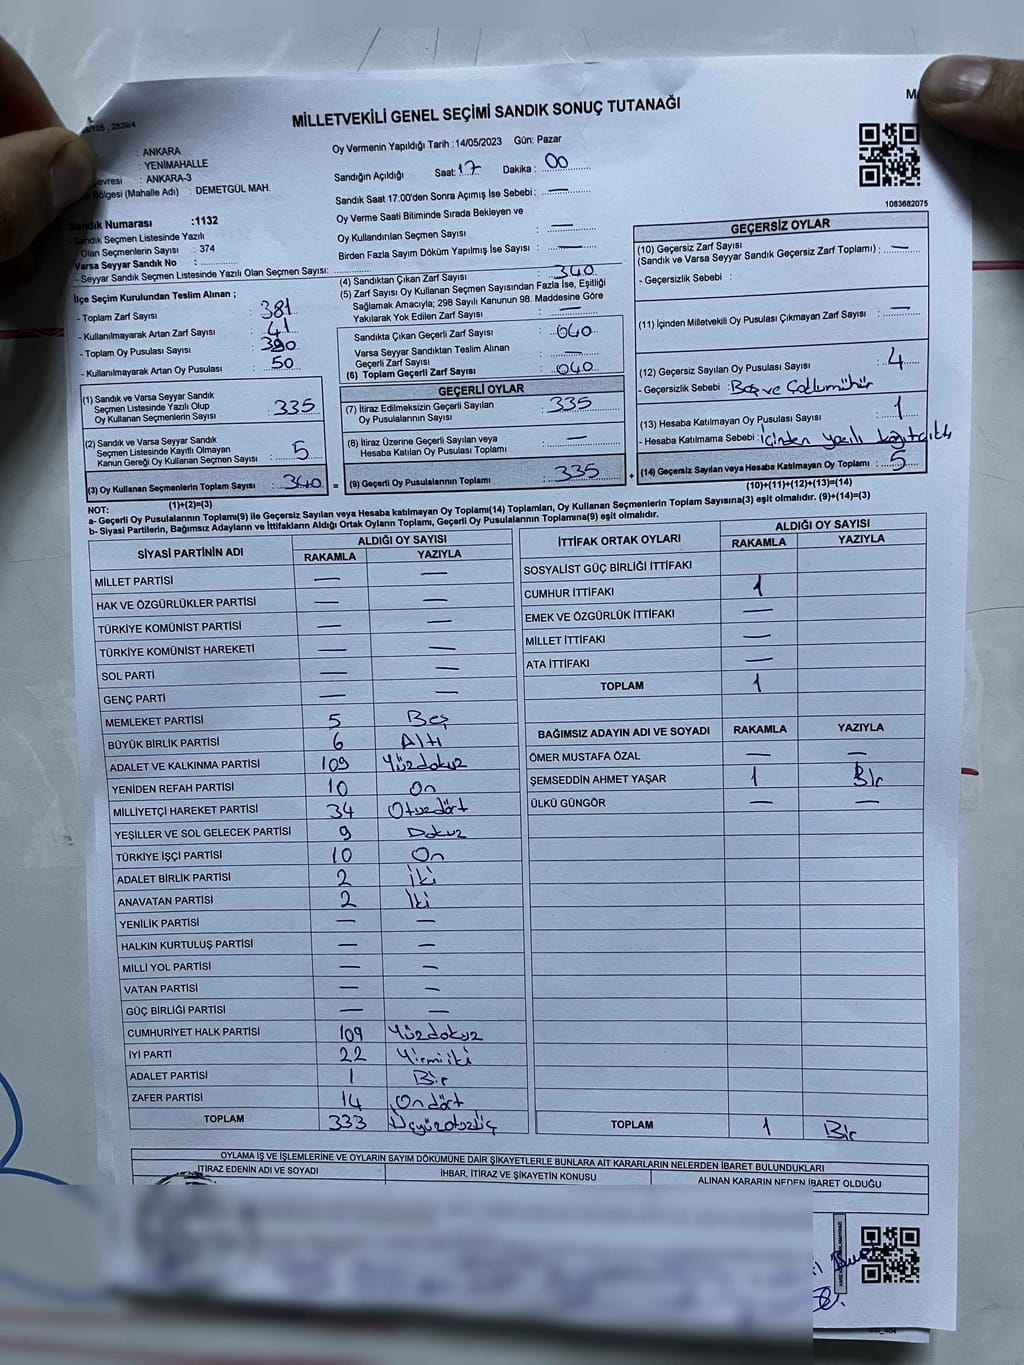 MİLLETVEKİLİ GENEL SEÇİMİ SANDIK SONUÇ TUTANAĞI
: ANKARA
: YENİMAHALLE
: ANKARA-3
Bölgesi (Mahalle Adı) : DEMETGÜL MAH.
Oy Vermenin Yapıldığı Tarih : 14/05/2023 Gün: Pazar
Sandığın Açıldığı Saat: 17 Dakika : 00
Sandık Saat 17:00'den Sonra Açımış İse Sebebi : —
Oy Verme Saati Bitiminde Sırada Bekleyen ve
Oy Kullandırılan Seçmen Sayısı : —
Birden Fazla Sayım Döküm Yapılmış İse Sayısı : —
1083682075
Sandık Numarası :1132
- Sandık Seçmen Listesinde Yazılı
Olan Seçmenlerin Sayısı : 374
Varsa Seyyar Sandık No :
- Seyyar Sandık Seçmen Listesinde Yazılı Olan Seçmen Sayısı:
İlçe Seçim Kurulundan Teslim Alınan ;
- Toplam Zarf Sayısı : 381
- Kullanılmayarak Artan Zarf Sayısı : 41
- Toplam Oy Pusulası Sayısı : 390
- Kullanılmayarak Artan Oy Pusulası : 50
(1) Sandık ve Varsa Seyyar Sandık
Seçmen Listesinde Yazılı Olup
Oy Kullanan Seçmenlerin Sayısı : 335
(2) Sandık ve Varsa Seyyar Sandık
Seçmen Listesinde Kayıtlı Olmayan
Kanun Gereği Oy Kullanan Seçmen Sayısı : 5
(3) Oy Kullanan Seçmenlerin Toplam Sayısı : 340
(1)+(2)=(3)
(4) Sandıktan Çıkan Zarf Sayısı : 340
(5) Zarf Sayısı Oy Kullanan Seçmen Sayısından Fazla İse, Eşitliği
Sağlamak Amacıyla; 298 Sayılı Kanunun 98. Maddesine Göre
Yakılarak Yok Edilen Zarf Sayısı : —
Sandıkta Çıkan Geçerli Zarf Sayısı : 040
Varsa Seyyar Sandıktan Teslim Alınan
Geçerli Zarf Sayısı : —
(6) Toplam Geçerli Zarf Sayısı : 040
GEÇERLİ OYLAR
(7) İtiraz Edilmeksizin Geçerli Sayılan
Oy Pusulalarının Sayısı : 335
(8) İtiraz Üzerine Geçerli Sayılan veya
Hesaba Katılan Oy Pusulası Toplamı : —
= (9) Geçerli Oy Pusulalarının Toplamı : 335 +
GEÇERSİZ OYLAR
(10) Geçersiz Zarf Sayısı
(Sandık ve Varsa Seyyar Sandık Geçersiz Zarf Toplamı) : —
- Geçersizlik Sebebi :
(11) İçinden Milletvekili Oy Pusulası Çıkmayan Zarf Sayısı : —
(12) Geçersiz Sayılan Oy Pusulası Sayısı : 4
- Geçersizlik Sebebi : Boş ve Çoklumühür
(13) Hesaba Katılmayan Oy Pusulası Sayısı : 1
- Hesaba Katılmama Sebebi : İçinden yazılı kağıtçıktı
(14) Geçersiz Sayılan veya Hesaba Katılmayan Oy Toplamı : 5
(10)+(11)+(12)+(13)=(14)
NOT:
a- Geçerli Oy Pusulalarının Toplamı(9) ile Geçersiz Sayılan veya Hesaba katılmayan Oy Toplamı(14) Toplamları, Oy Kullanan Seçmenlerin Toplam Sayısına(3) eşit olmalıdır. (9)+(14)=(3)
b- Siyasi Partilerin, Bağımsız Adayların ve İttifakların Aldığı Ortak Oyların Toplamı, Geçerli Oy Pusulalarının Toplamına(9) eşit olmalıdır.
SİYASİ PARTİNİN ADI ALDIĞI OY SAYISI
RAKAMLA YAZIYLA
MİLLET PARTİSİ — —
HAK VE ÖZGÜRLÜKLER PARTİSİ — —
TÜRKİYE KOMÜNİST PARTİSİ — —
TÜRKİYE KOMÜNİST HAREKETİ — —
SOL PARTİ — —
GENÇ PARTİ — —
MEMLEKET PARTİSİ 5 Beş
BÜYÜK BİRLİK PARTİSİ 6 Altı
ADALET VE KALKINMA PARTİSİ 109 Yüzdokuz
YENİDEN REFAH PARTİSİ 10 On
MİLLİYETÇİ HAREKET PARTİSİ 34 Otuzdört
YEŞİLLER VE SOL GELECEK PARTİSİ 9 Dokuz
TÜRKİYE İŞÇİ PARTİSİ 10 On
ADALET BİRLİK PARTİSİ 2 İki
ANAVATAN PARTİSİ 2 İki
YENİLİK PARTİSİ — —
HALKIN KURTULUŞ PARTİSİ — —
MİLLİ YOL PARTİSİ — —
VATAN PARTİSİ — —
GÜÇ BİRLİĞİ PARTİSİ — —
CUMHURİYET HALK PARTİSİ 109 Yüzdokuz
İYİ PARTİ 22 Yirmiiki
ADALET PARTİSİ 1 Bir
ZAFER PARTİSİ 14 Ondört
TOPLAM 333 Üçyüzotuzüç
İTTİFAK ORTAK OYLARI ALDIĞI OY SAYISI
RAKAMLA YAZIYLA
SOSYALİST GÜÇ BİRLİĞİ İTTİFAKI
CUMHUR İTTİFAKI 1
EMEK VE ÖZGÜRLÜK İTTİFAKI —
MİLLET İTTİFAKI —
ATA İTTİFAKI —
TOPLAM 1
BAĞIMSIZ ADAYIN ADI VE SOYADI RAKAMLA YAZIYLA
ÖMER MUSTAFA ÖZAL — —
ŞEMSEDDİN AHMET YAŞAR 1 Bir
ÜLKÜ GÜNGÖR — —
TOPLAM 1 Bir
OYLAMA İŞ VE İŞLEMLERİNE VE OYLARIN SAYIM DÖKÜMÜNE DAİR ŞİKAYETLERLE BUNLARA AİT KARARLARIN NELERDEN İBARET BULUNDUKLARI
İTİRAZ EDENİN ADI VE SOYADI İHBAR, İTİRAZ VE ŞİKAYETİN KONUSU ALINAN KARARIN NEDEN İBARET OLDUĞU